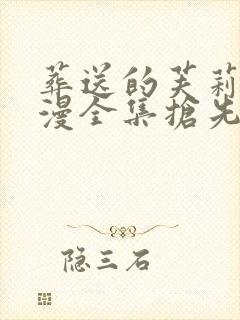 葬送的芙莉
漫全集搶先
隐三石